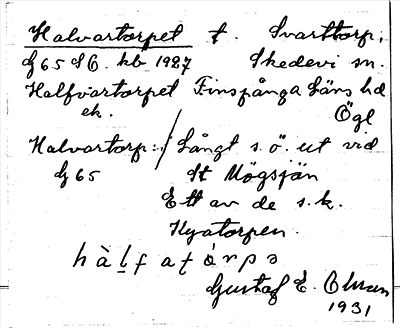 Halvartorpet t. Svarttorp,
G 65 SÖ. kb 1927 Skedevi sn.
Halfvartorpet Finspånga läns hd
ek. Ögl
Halvartorp: / Långt s.ö. ut vid
G 65 St Mögsjön
Ett av de s.k.
Nyatorpen.
hàlfatórpə
Gustaf E. Olsson
1931